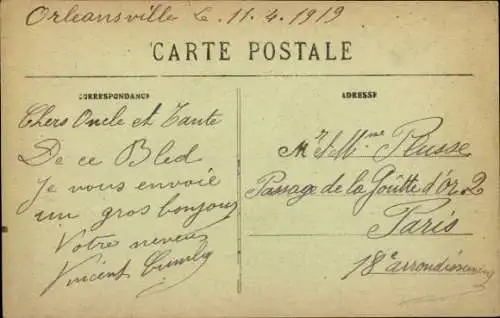 Orléansville le 11.4.1919
CARTE POSTALE
CORRESPONDANCE
ADRESSE
Chers Oncle et Tante
De ce Bled
Je vous envoie
un gros bonjour
Votre neveu
Vincent
Mr et Mme Plusse
Passage de la Goûtte d'or 2
Paris
18e arrondissement